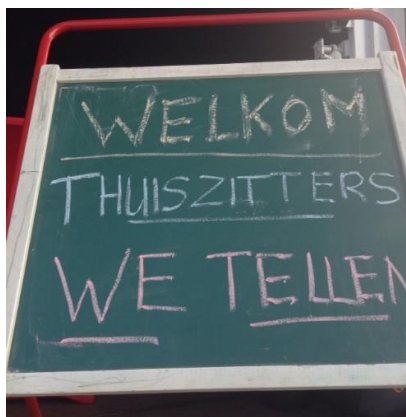 WELKOM
THUISZITTERS
WE TELLEN